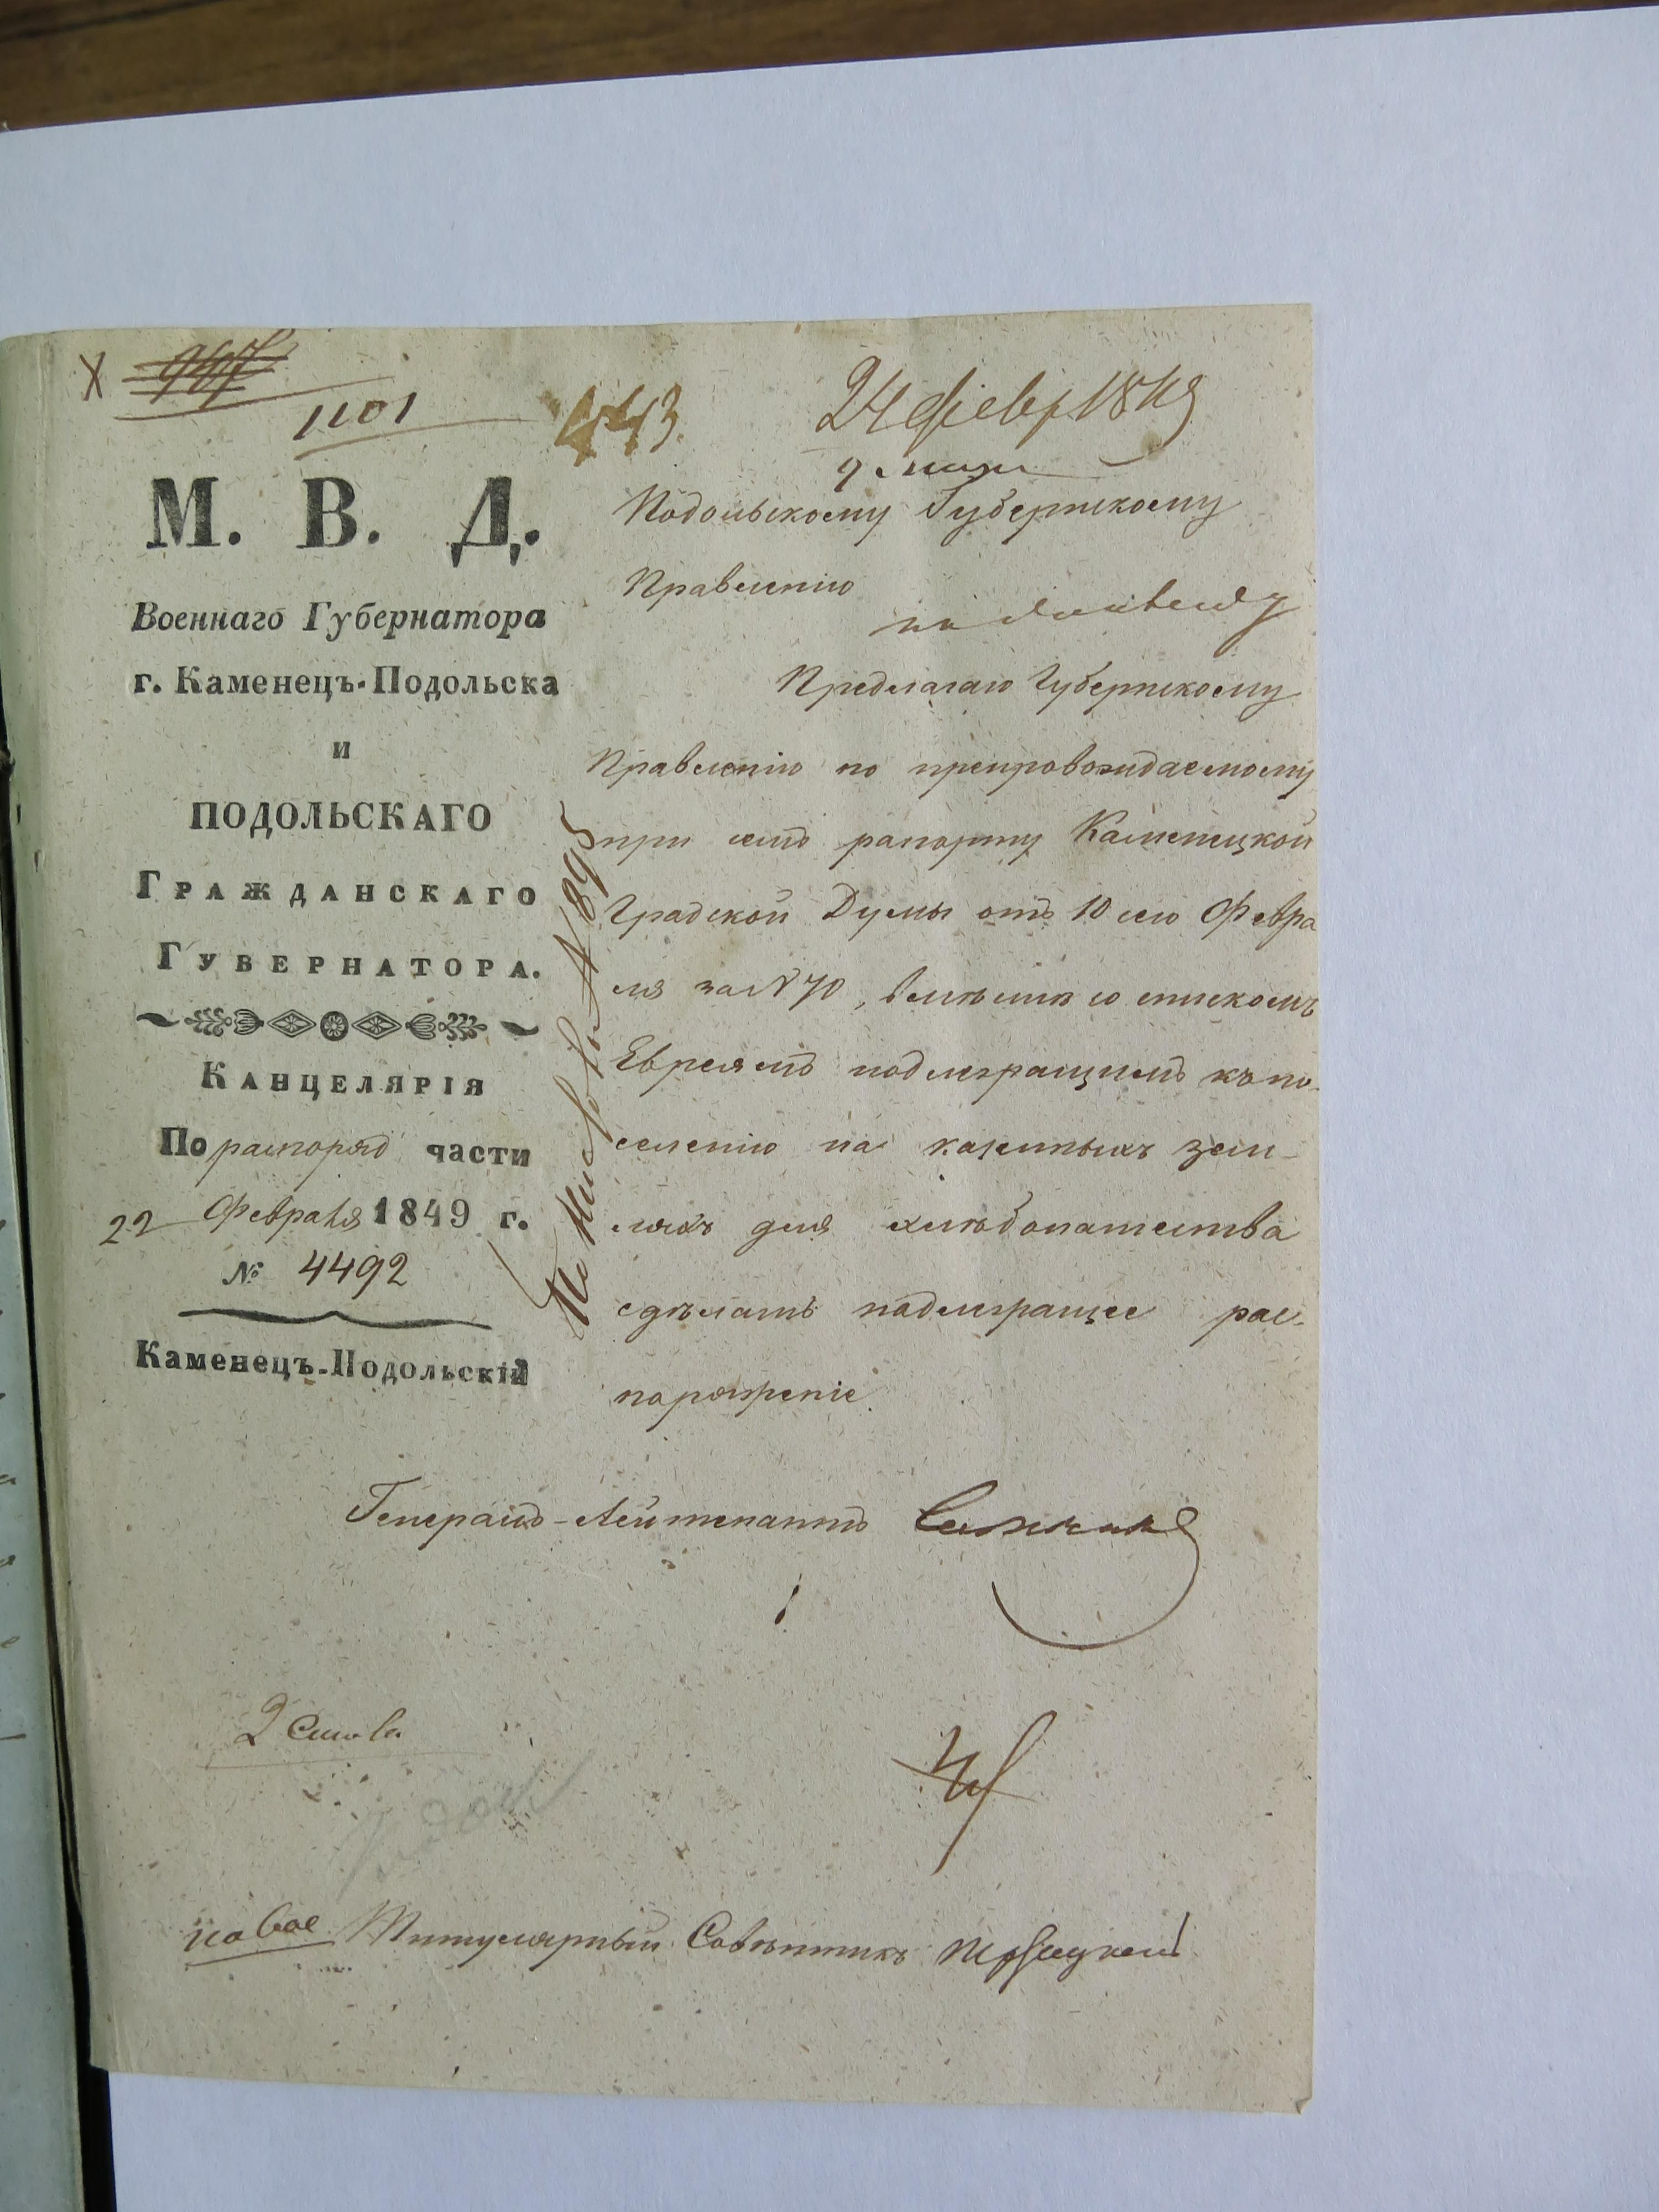 1101
443.
24 Февр 1849
М. В. Д.
Военнаго Губернатора
г. Каменецъ-Подольска
и
ПОДОЛЬСКАГО
ГРАЖДАНСКАГО
ГУБЕРНАТОРА.
КАНЦЕЛЯРІЯ
По распоряд части
22 Февраля 1849 г.
№ 4492
Каменецъ-Подольскій
Подольскому Губернскому
Правленію
Предлагаю Губернскому
Правленію по препровождаемому
при семъ рапорту Каменецкой
Градской Думы отъ 10 сего Февра
ля за № 70, вмѣстѣ со спискомъ
Евреямъ подлежащимъ къ по-
селенію на казенныхъ зем-
ляхъ для хлѣбопашества
сдѣлать надлежащее рас-
поряженіе.
Генералъ-Лейтенантъ
новое Титулярный Совѣтникъ